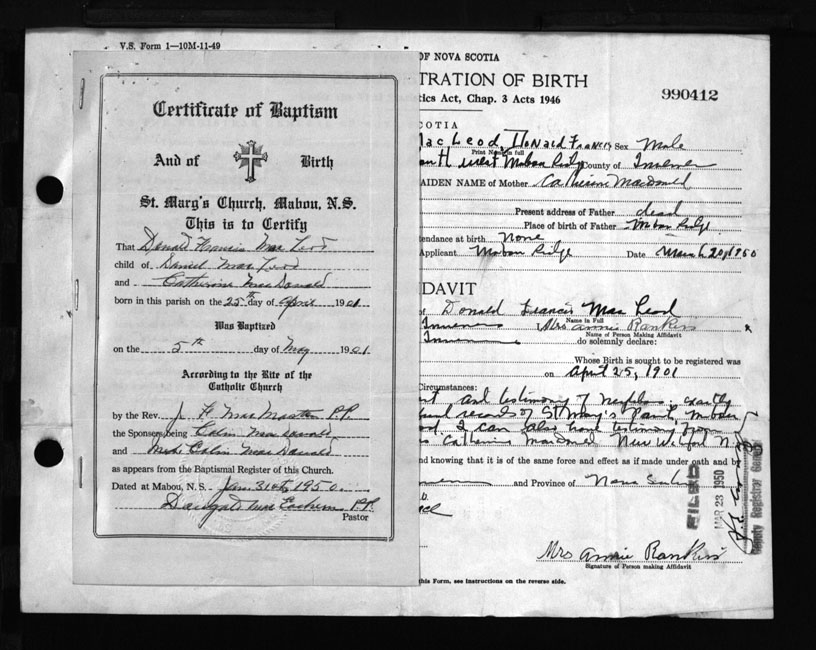 V.S. Form 1—10M-11-49
Certificate of Baptism
And of Birth
St. Mary's Church, Mabou, N.S.
This is to Certify
That Donald Francis MacLeod
child of Daniel MacLeod
and Catherine MacDonald
born in this parish on the 25th day of April 1901
Was Baptized
on the 5th day of May 1901
According to the Rite of the
Catholic Church
by the Rev. J. F. MacMaster P.P.
the Sponsors being Colin MacDonald
and Mrs Colin MacDonald
as appears from the Baptismal Register of this Church.
Dated at Mabou, N.S. Jan. 31st, 1950.
P.P.
Pastor
OF NOVA SCOTIA
TRATION OF BIRTH
tics Act, Chap. 3 Acts 1946
990412
COTIA
Mac Leod, Donald Francis Sex Male
Print Name in full
West Mabou Ridge County of Inverness
AIDEN NAME of Mother Catherine Macdonald
Present address of Father dead
Place of birth of Father Mabou Ridge
tendance at birth None
Applicant Mabou Ridge Date March 20, 1950
DAVIT
of Donald Francis MacLeod
Name in Full
Inverness Mrs Annie Rankin
Name of Person Making Affidavit
Inverness do solemnly declare:
Whose Birth is sought to be registered was
on April 25, 1901
Circumstances:
and testimony of
records of St Mary's Parish, Mabou
I can also have testimony from
Catherine Macdonald New
and knowing that it is of the same force and effect as if made under oath and by
and Province of Nova Scotia
FILED
MAR 23 1950
Deputy Registrar General
Mrs Annie Rankin
Signature of Person making Affidavit
this Form, see instructions on the reverse side.